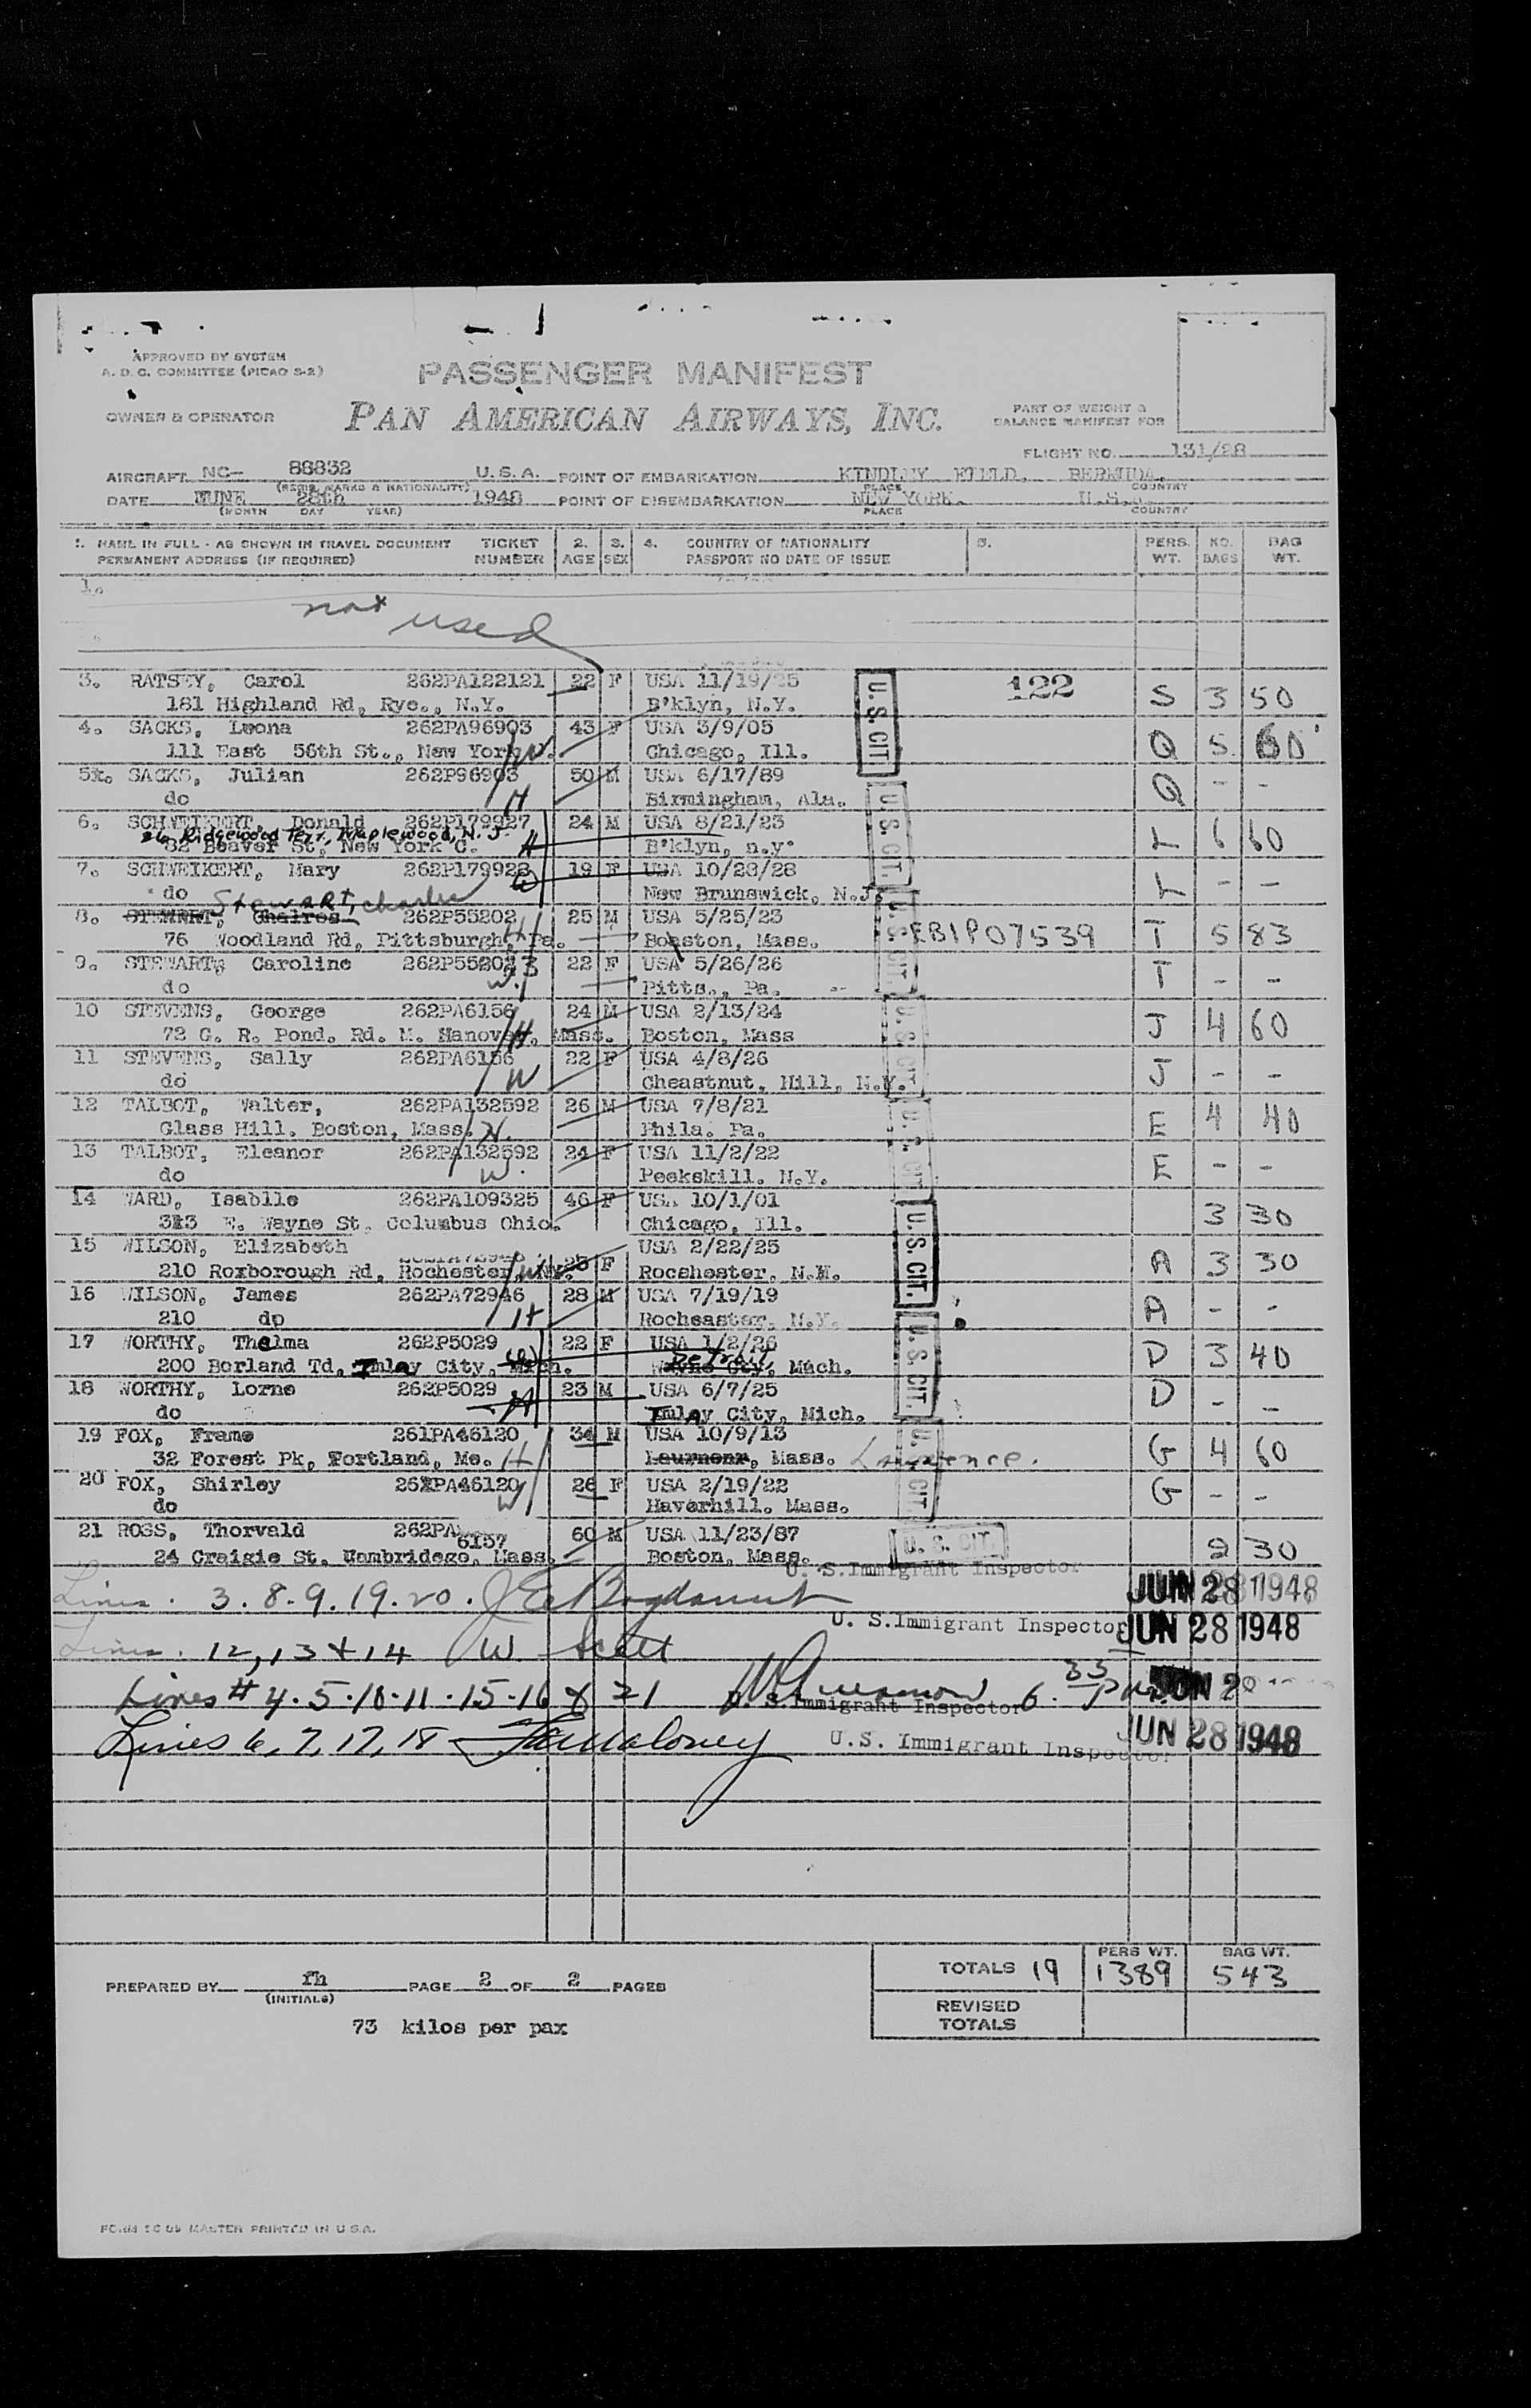 APPROVED BY SYSTEM
A. D. C. COMMITTEE (PICAO S-2)
PASSENGER MANIFEST
OWNER & OPERATOR
PAN AMERICAN AIRWAYS, INC.
PART OF WEIGHT &
BALANCE MANIFEST FOR
FLIGHT NO. 131/28
AIRCRAFT NC- 88832 U.S.A. POINT OF EMBARKATION KINDLEY FIELD, BERMUDA.
(REGIS. MARKS & NATIONALITY) PLACE COUNTRY
DATE JUNE 28th 1948 POINT OF DISEMBARKATION NEW YORK. U.S.
(MONTH DAY YEAR) PLACE COUNTRY
1. NAME IN FULL - AS SHOWN IN TRAVEL DOCUMENT TICKET 2. 3. 4. COUNTRY OF NATIONALITY 5. PERS. NO. BAG
PERMANENT ADDRESS (IF REQUIRED) NUMBER AGE SEX PASSPORT NO DATE OF ISSUE WT. BAGS WT.
1.
not used
3. RATSEY, Carol 262PA122121 22 F USA 11/19/25 122 S 3 50
181 Highland Rd, Rye., N.Y. B'klyn, N.Y.
U.S. CIT
4. SACKS, Leona 262PA96903 43 F USA 3/9/05 Q 5 60
111 East 56th St., New York W. Chicago, Ill.
5x. SACKS, Julian 262P96903 50 M USA 6/17/89 Q - -
do H Birmingham, Ala.
U.S. CIT.
6. SCHWEIKERT, Donald 262P179927 24 M USA 8/21/23 L 6 60
26 Ridgewood Terr. Maplewood, N.J.
82 Beaver St, New York C. H B'klyn, n.y.
7. SCHWEIKERT, Mary 262P179928 19 F USA 10/28/28 L - -
do W New Brunswick, N.J.
Stewart, Charles
8. STEWRT, Chalres 262P55202 25 M USA 5/25/23 EB1P07539 T 5 83
76 Woodland Rd, Pittsburgh, Pa. H Boaston, Mass.
U.S. CIT.
9. STEWART, Caroline 262P55203 22 F USA 5/26/26 T - -
do W. Pitts., Pa. --
10 STEVENS, George 262PA6156 24 M USA 2/13/24 J 4 60
72 G. R. Pond. Rd. M. Hanover. Mass. H. Boston, Mass
U.S. CIT
11 STEVENS, Sally 262PA6156 22 F USA 4/8/26 J - -
do W Cheastnut, Hill, N.Y.
12 TALBOT, Walter, 262PA132592 26 M USA 7/8/21 E 4 40
Glass Hill. Boston, Mass. H. Phila. Pa.
U.S. CIT
13 TALBOT, Eleanor 262PA132592 24 F USA 11/2/22 E - -
do W. Peekskill. N.Y.
14 WARD, Isablle 262PA109325 46 F USA 10/1/01 3 30
313 E. Wayne St. Columbus Ohio. Chicago, Ill.
U.S. CIT.
15 WILSON, Elizabeth 23 F USA 2/22/25 A 3 30
210 Roxborough Rd, Rochester, W Rocshester, N.Y.
16 WILSON, James 262PA72946 28 M USA 7/19/19 A - -
210 do H Rocheaster, N.Y.
17 WORTHY, Thelma 262P5029 22 F USA 1/2/26 D 3 40
Detroit
200 Borland Td, Imlay City, Mich. W Wayne Cty, Mach.
U.S. CIT.
18 WORTHY, Lorne 262P5029 23 M USA 6/7/25 D - -
do H Imlay City, Mich.
19 FOX, Frame 261PA46120 34 M USA 10/9/13 G 4 60
32 Forest Pk, Portland, Me. H Lournenr, Mass. Lawrence.
U.S. CIT
20 FOX, Shirley 262PA46120 26 F USA 2/19/22 G - -
do W Haverhill. Mass.
21 ROSS, Thorvald 262PA 6157 60 M USA 11/23/87 2 30
24 Craigie St. Cambridege, Mass. Boston, Mass.
U. S. CIT.
U. S. Immigrant Inspector
Lines. 3.8.9.19.20. JUN 28 1948
U. S. Immigrant Inspector
Lines. 12, 13 & 14 W. Scott JUN 28 1948
Lines # 4.5.10.11.15.16 & 21 6.35 PM
U. S. Immigrant Inspector
Lines 6, 7, 17, 18 Maloney U.S. Immigrant Inspector JUN 28 1948
TOTALS 19 PERS WT. 1389 BAG WT. 543
PREPARED BY rh PAGE 2 OF 2 PAGES
(INITIALS)
REVISED
TOTALS
73 kilos per pax
MASTER PRINTED IN U.S.A.